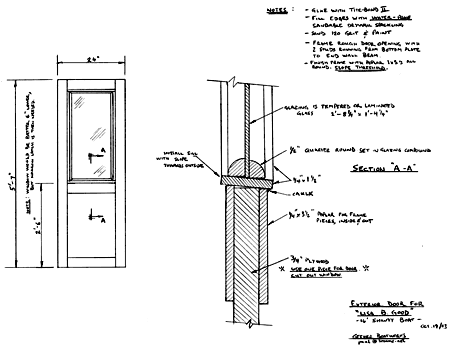 NOTES :
- GLUE WITH TITE-BOND II
- FILL EDGES WITH WATER-PROOF
SANDABLE DRYWALL SPACKLING
- SAND 120 GRIT & PAINT
- FRAME ROUGH DOOR OPENING WITH
2 STUDS RUNNING FROM BOTTOM PLATE
TO END WALL BEAM
- FINISH FRAME WITH POPLAR 1x3's ALL
ROUND. SLOPE THRESHOLD.
24"
5'-7"
NOTE: WINDOW WOULD BE BETTER 6" LOWER,
BUT WINDOW LATCH IS THEN NEEDED.
2'-6"
A
A
GLAZING IS TEMPERED OR LAMINATED
GLASS 2'-8 3/4" x 1'-4 1/4"
1/2" QUARTER ROUND SET IN GLAZING COMPOUND
INSTALL SILL
WITH SLOPE
TOWARDS OUTSIDE
SECTION "A-A"
3/4" x 1 1/2"
CAULK
3/4" x 3 1/2" POPLAR FOR FRAME
PIECES, INSIDE & OUT
3/4" PLYWOOD
* USE ONE PIECE FOR DOOR *
CUT OUT WINDOW
EXTERIOR DOOR FOR
"LISA B. GOOD"
- 16' SHANTY BOAT -
OCT. 19/13